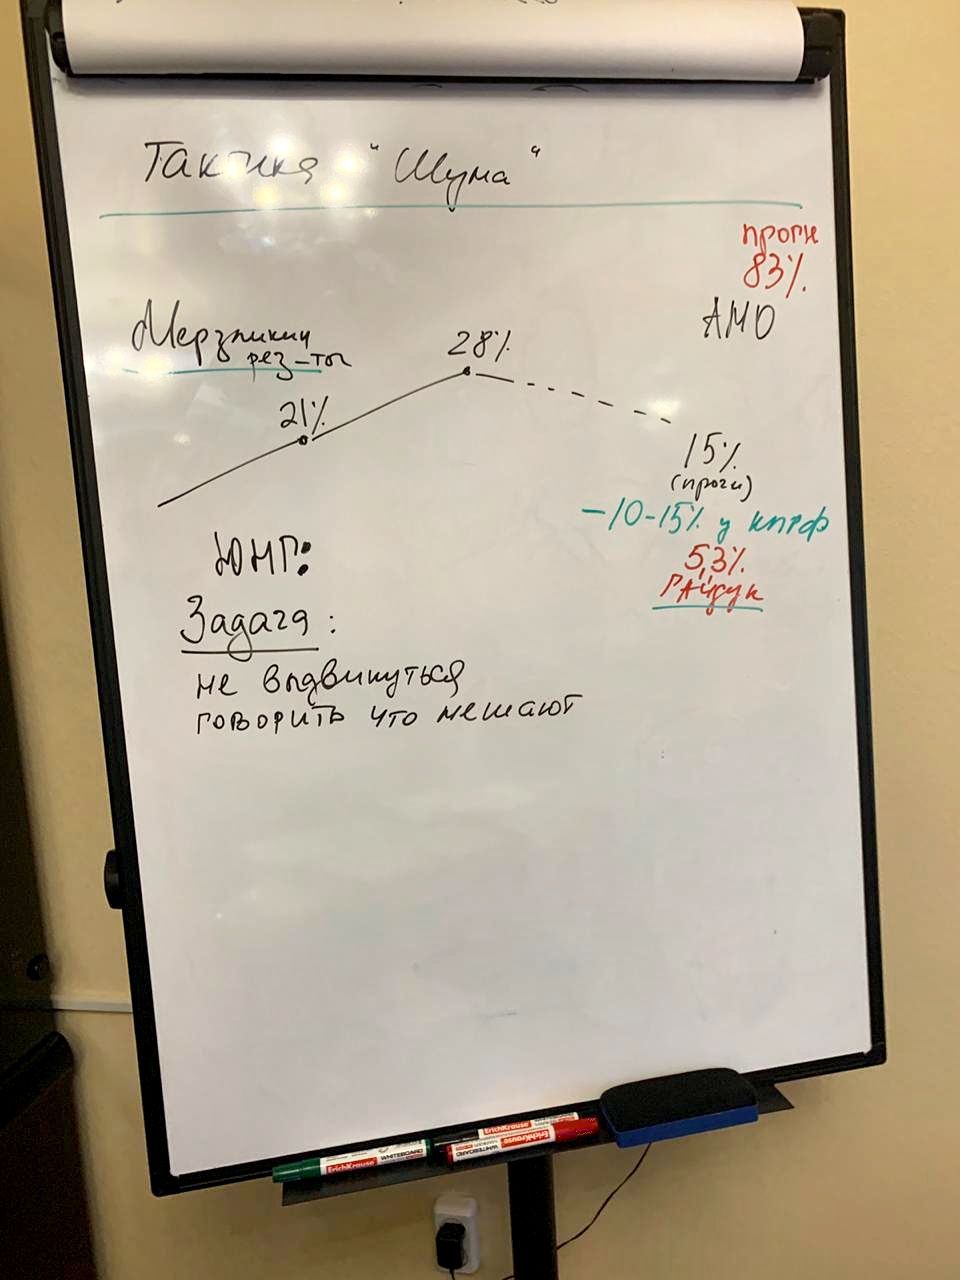 Тактика "Шума"
прогн
83%
АМО
Мерзликин
рез-ты
28%
21%
15%
(прогн)
-10-15% у КПРФ
5,3%
Гайдук
ЮНГ:
Задача:
не выдвинуться
говорить что мешают
ErichKrause
WHITEBOARD
ErichKrause
ErichKrause
WHITEBOARD